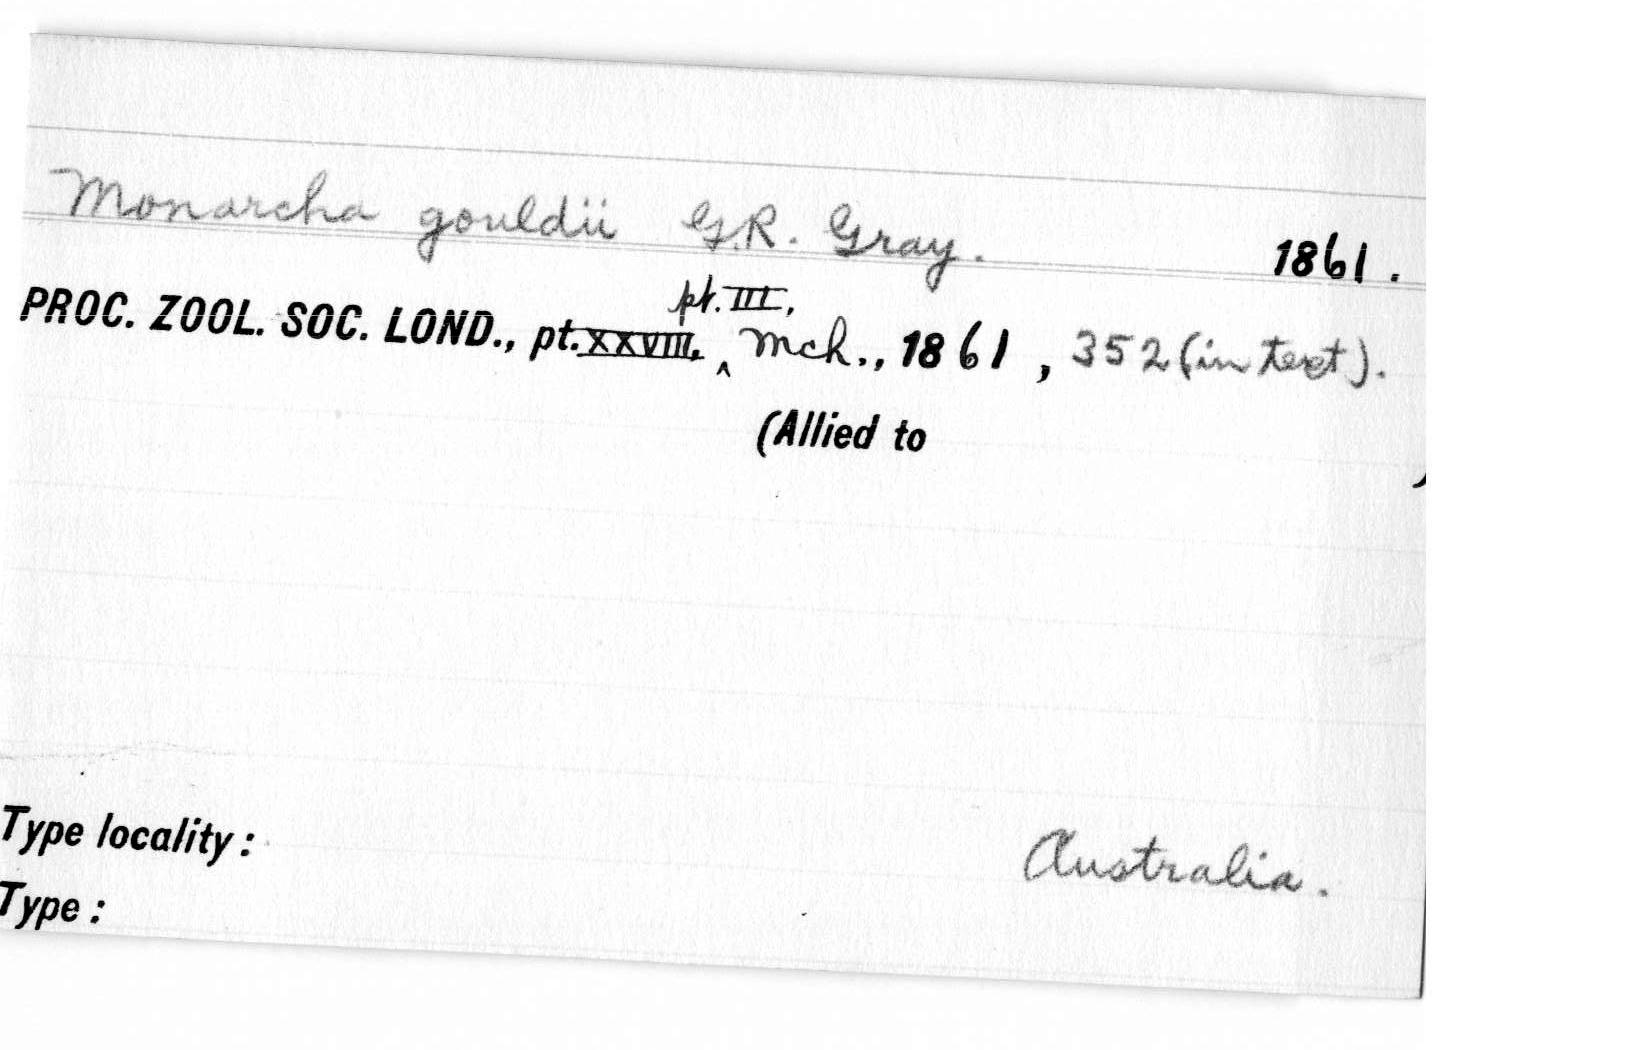 Monarcha gouldii G.R. Gray. 1861.
pt. III,
PROC. ZOOL. SOC. LOND., pt. XXVIII, ^ Mch., 1861, 352 (in text).
(Allied to )
Type locality: Australia.
Type: